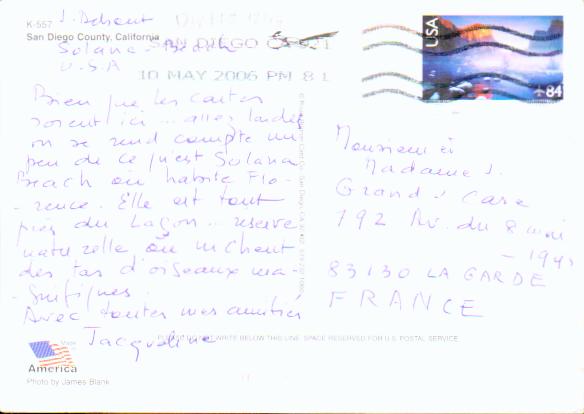 K-557
San Diego County, California
Solana Beach
U.S.A
SAN DIEGO CA 921
10 MAY 2006 PM 8 L
USA
84
Bien que les cartes
soient ici ... assez laides
on se rend compte un
peu de ce qu'est Solana
Beach où habite Flo-
-rence. Elle est tout
près du Lagon ... reserve
naturelle où nichent
des tas d'oiseaux ma-
-gnifiques.
Avec toutes mes amitiés
Jacqueline
Monsieur et
Madame J.
Grand' Case
192 Av. du 8 mai
- 1945
83130 LA GARDE
FRANCE
PLEASE DO NOT WRITE BELOW THIS LINE. SPACE RESERVED FOR U.S. POSTAL SERVICE.
Made in
America
Photo by James Blank